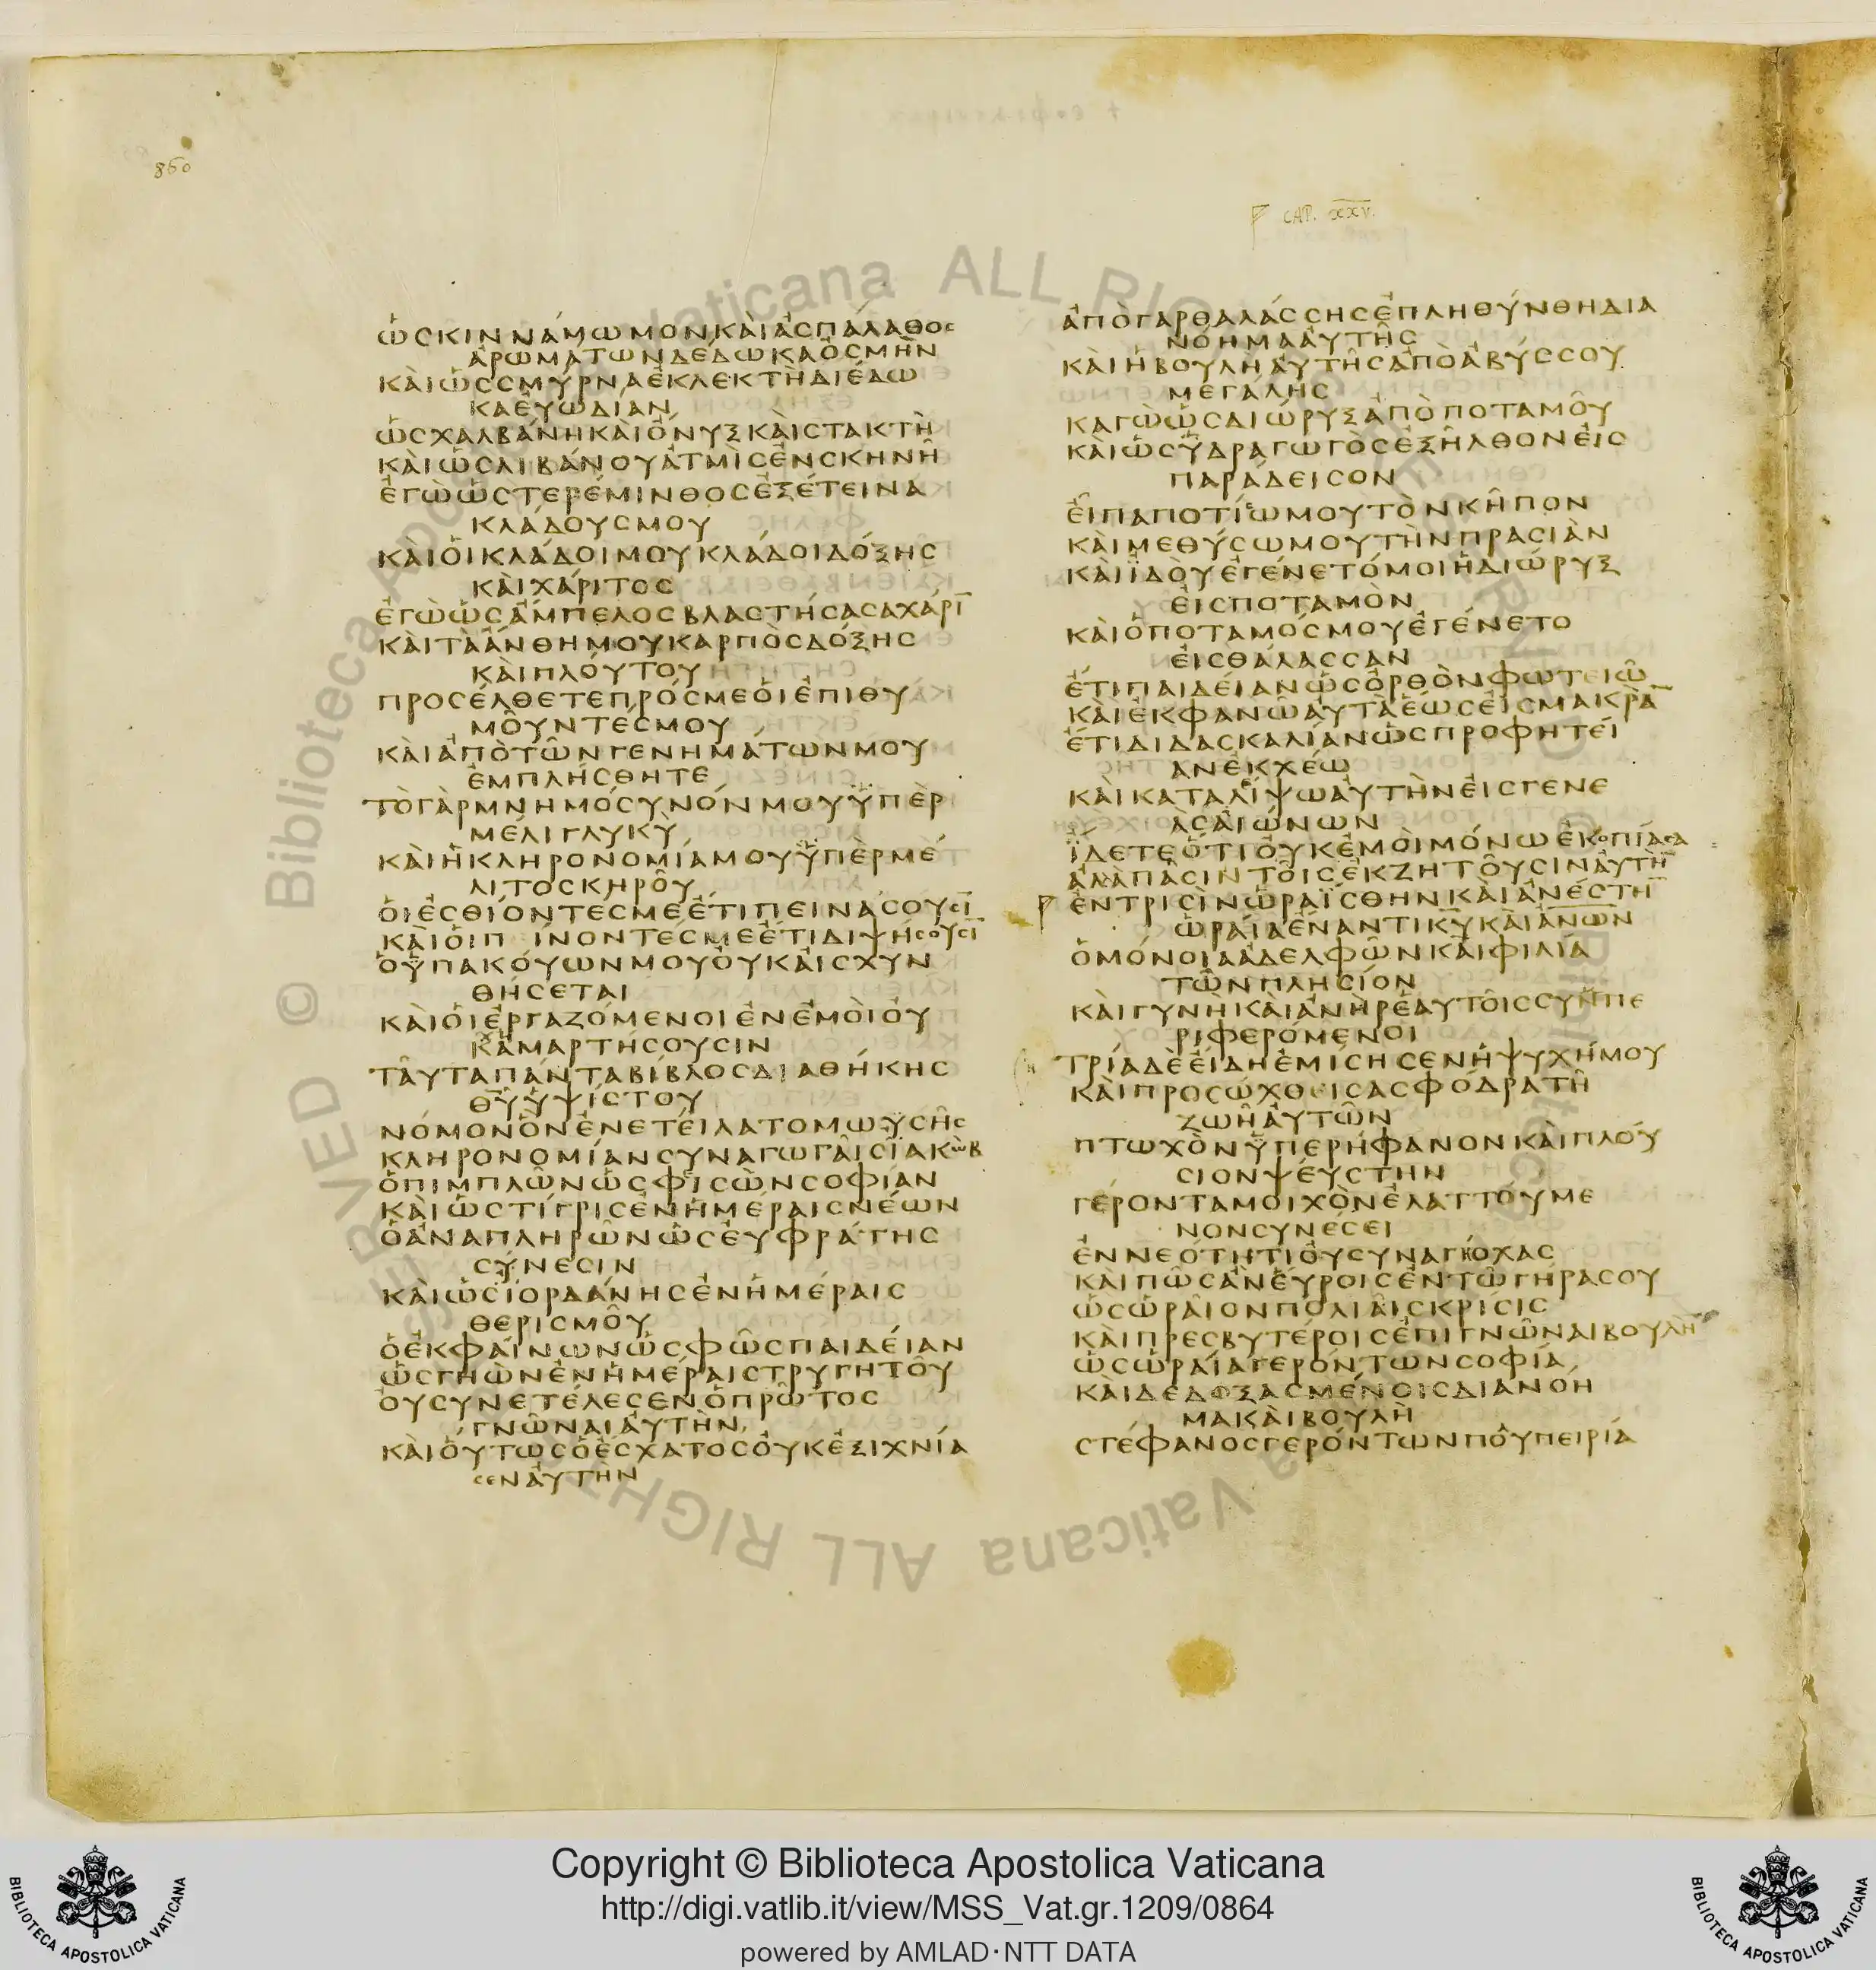 860
CAP. XXV.
ὡσκιννάμωμονκαὶἀσπάλαθος
ἀρωμάτωνδέδωκαὀσμὴν
καὶὡσσμύρναἐκλεκτὴδιέδω
καἐυωδίαν
ὡσχαλβάνηκαὶὄνυξκαὶστακτὴ
καὶὡσλιβάνουἀτμὶσἐνσκηνῆ
ἐγὼὡστερέμινθοσἐξέτεινα
κλάδουσμου
καὶὁικλάδοιμουκλάδοιδόξησ
καὶχάριτοσ
ἐγὼὡσἄμπελοσβλαστήσασαχάρῑ
καὶταἄνθημουκαρπὸσδόξησ
καὶπλόυτου
προσέλθετεπρόσμεὁιἐπιθυ
μοῦντέσμου
καὶἀπὸτῶνγενημάτωνμου
ἐμπλήσθητε
τὸγὰρμνημόσυνόνμουὑπὲρ
μέλιγλυκὺ
καὶἡκληρονομίαμουὑπὲρμέ
λιτοσκηροῦ
ὁιἐσθίοντέσμεἔτιπεινάσουσῑ
καὶὁιπίνοντέσμεἔτιδιψήσουσῑ
ὁὑπακόυωνμουὀυκἀισχυν
θήσεται
καὶὁιἐργαζόμενοιἐνἐμὸιὀυ
χἁμαρτήσουσιν
ταῦταπάνταβίβλοσδιαθήκησ
θ̅υ̅ὑψίστου
νόμονὃνἐνετέιλατομωυσῆσ
κληρονομίανσυναγωγαῖσϊακὼβ
ὁπιμπλῶνὡσφισὼνσοφίαν
καὶὡστίγρισἐνἡμέραισνέων
ὁἀναπληρῶνὡσἐυφράτησ
σύνεσιν
καὶὡσἰορδάνησἐνἡμέραισ
θερισμοῦ
ὁἐκφάινωνὡσφῶσπαιδέιαν
ὡσγηὼνἐνἡμέραιστρυγητοῦ
ὀυσυνετέλεσενὁπρῶτοσ
γνῶναιἀυτὴν
καὶὁύτωσὁἔσχατοσὀυκἐξιχνία
σενἀυτὴν
ἀπὸγαρθαλάσσησἐπληθύνθηδια
νόημαἀυτῆσ
καὶἡβουλὴἀυτῆσἀπὸἀβύσσου
μεγάλησ
καγὼὡσδιώρυξἀπὸποταμοῦ
καὶὡσὑδραγωγὸσἐξῆλθονἐισ
παράδεισον
ἐῖπαποτίωμουτὸνκῆπον
καὶμεθύσωμουτὴνπρασιὰν
καὶϊδὸυἐγένετόμοιἡδιώρυξ
ἐισποταμὸν
καὶὁποταμόσμουἐγένετο
ἐισθάλασσαν
ἔτιπαιδέιανὡσὄρθονφωτειῶ
καὶἐκφανῶἀυτὰἕωσἐισμακρὰ̅
ἔτιδιδασκαλίανὡσπροφητέι
ανἐκχέω
καὶκαταλέιψωἀυτὴνἐισγενε
ὰσἀιώνων
ϊδετεὅτιὀυκἐμὸιμόνωἐκοπίασα
αλλαπᾶσιντοῖσἐκζητοῦσινἀυτὴ̅
ἐντρισὶνὡραΐσθηνκαὶἀνέστη̅
ὡράιαἔναντικ̅υ̅καὶἀ̅ν̅ω̅ν̅
ὁμόνοιαἀδελφῶνκαὶφιλία
τῶνπλησίον
καὶγυνὴκαὶἀνὴρἑαυτοῖσσυμπε
ριφερόμενοι
τρίαδὲἔιδηἐμίσησενἡψυχήμου
καὶπροσώχθεισασφόδρατῆ
ζωῆἀυτῶν
πτωχὸνὑπερήφανονκαὶπλόυ
σιονψέυστην
γέρονταμοιχὸνἐλαττόυμε
νονσυνέσει
ἐννεότητιὀυσυναγιόχασ
καιπῶσἂνἕυροισἐντῶγήρασου
ὡσὡραῖονπολιαῖσκρίσισ
καὶπρεσβυτέροισἐπιγνῶναιβουλὴ̅
ὡσὡράιαγερόντωνσοφία
καὶδεδοξασμένοισδιανόη
μακαὶβουλὴ
στέφανοσγερόντωνπολυπειρία
Copyright © Biblioteca Apostolica Vaticana
http://digi.vatlib.it/view/MSS_Vat.gr.1209/0864
powered by AMLAD·NTT DATA
BIBLIOTECA APOSTOLICA VATICANA
BIBLIOTECA APOSTOLICA VATICANA